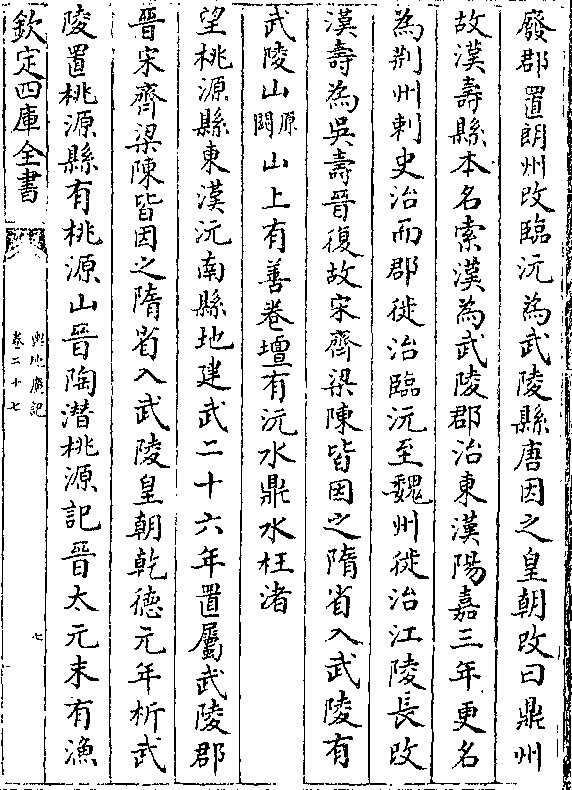 廢郡置朗州改臨沅為武陵縣唐因之皇朝改曰鼎州
故漢壽縣本名索漢為武陵郡治東漢陽嘉三年更名
為荆州刺史治而郡徙治臨沅至魏州徙治江陵長改
漢壽為吳壽晉復故宋齊梁陳皆因之隋省入武陵有
武陵山原闕山上有善卷壇有沅水鼎水枉渚
望桃源縣東漢沅南縣地建武二十六年置屬武陵郡
晉宋齊梁陳皆因之隋省入武陵皇朝乾德元年析武
陵置桃源縣有桃源山晉陶潛桃源記晉太元末有漁
欽定四庫全書
輿地廣記
卷二十七
七